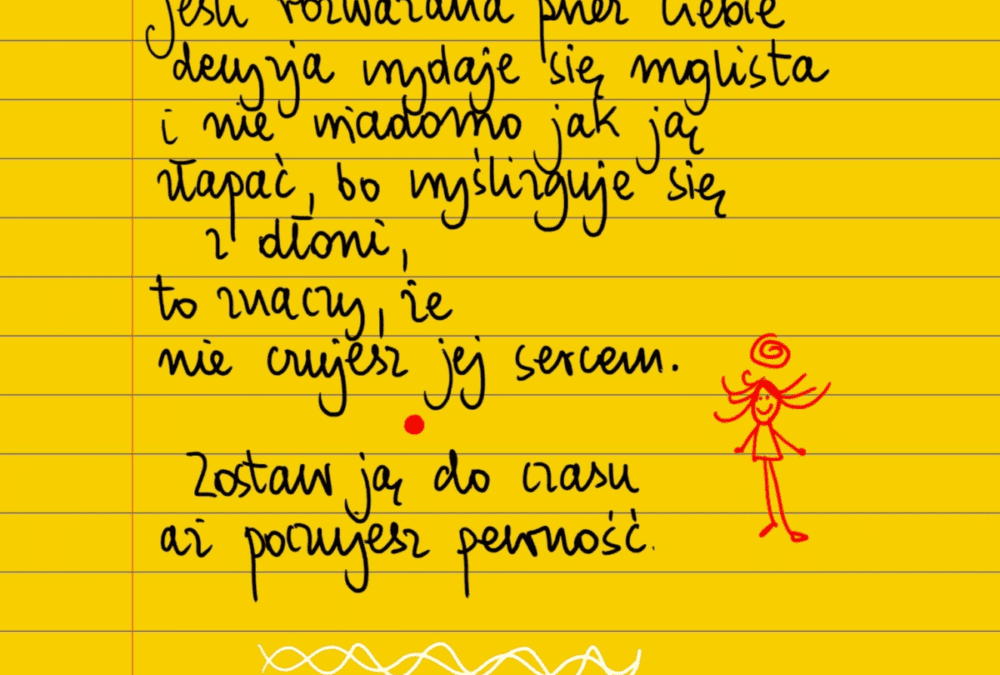 jeśli rozważana przez Ciebie
decyzja wydaje się mglista
i nie wiadomo jak ją
złapać, bo wyślizguje się
z dłoni,
to znaczy, że
nie czujesz jej sercem.
Zostaw ją do czasu
aż poczujesz pewność.